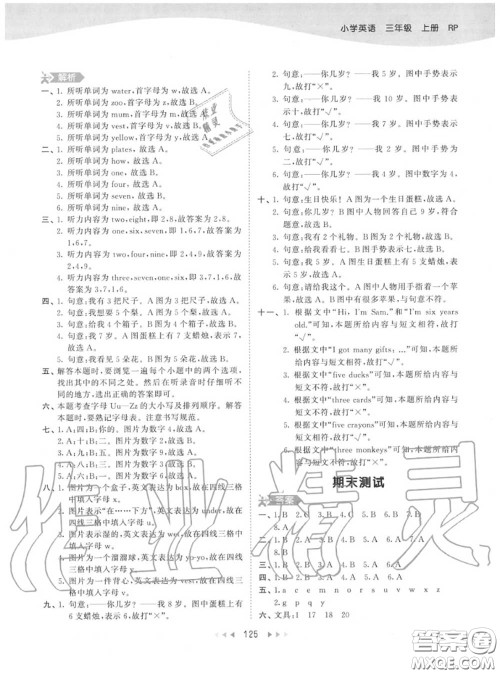 小学英语 三年级 上册 RP
解析
一、1. 所听单词为 water,首字母为 w,故选 A。
2. 所听单词为 zoo,首字母为 z,故选 B。
3. 所听单词为 mum,首字母为 m,故选 A。
4. 所听单词为 vest,首字母为 v,故选 B。
5. 所听单词为 yellow,首字母为 y,故选 A。
二、1. 所听单词为 plates,故选 A。
2. 所听单词为 how,故选 A。
3. 所听单词为 one,故选 B。
4. 所听单词为 four,故选 B。
5. 所听单词为 seven,故选 A。
6. 所听单词为 nine,故选 A。
三、1. 听力内容为 two,eight,即 2,8,故答案为 2,8。
2. 听力内容为 one,six,seven,即 1,6,7,故答案为
1,6,7。
3. 听力内容为 two,four,nine,即 2,4,9,故答案为
2,4,9。
4. 听力内容为 three,seven,one,six,即 3,7,1,6,故
答案为 3,7,1,6。
四、1. 句意:我有 3 把尺子。A 图为 3 把尺子,故选 A。
2. 句意:我想要 5 个梨。A 图为 5 个梨,故选 A。
3. 句意:给我 4 个箱子。B 图为 4 个箱子,故选 B。
4. 句意:7 根蜡烛。A 图蛋糕上有 7 支蜡烛,表示七
岁,故选 A。
5. 句意:我看见 5 朵花。B 图为 5 朵花,故选 B。
五、解答本题时,要浏览一遍每个小题中的两个选项,
找出其中的不同之处。然后在听录音时仔细听不
同的地方,以快速选出答案。
六、本题考查字母 Uu—Zz 的大小写及排列顺序。解答
本题时,要熟记字母表。注意书写规范。
七、1. A:1;B:2。图片为数字 2,故选 B。
2. A:4;B:5。图片为数字 4,故选 A。
3. A
4. A
5. A:六;B:一。图片为数字 6,故选 A。
八、1. 图片为一个盒子,英文表达为 box,故在四线三格
中填入字母 x。
2. 图片表示“在……下方”,英文表达为 under,故在
四线三格中填入字母 u。
3.
线三格中填入字母 w。
4. 图片为一个溜溜球,英文表达为 yo-yo,故在四线
三格中填入字母 y。
5. 图片为一件背心,英文表达为 vest,故在四线三
格中填入字母 v。
九、1. 句意:——你几岁?——我 8 岁。图中蛋糕上有
6 支蜡烛,表示六岁,故打“×”。
2. 句意:——你几岁?——我 5 岁。图中手势表示
九,故打“×”。
3. 句意:——你几岁?——我 10 岁。图中手势表示
十,故打“√”。
4. 句意:——你几岁?——我 7 岁。图中手势表示
七,故打“√”。
5. 句意:——你几岁?——我 2 岁。图中手势为
二,故打“√”。
6. 句意:——你几岁?——我 4 岁。图中为数字 4,
故打“√”。
十、1. 句意:生日快乐!A 图为一个生日蛋糕,故选 A。
2. 句意:你几岁?B 图中人物回答自己 9 岁,符合
题意,故选 B。
3. 句意:我有 2 个礼物。B 图为 2 个礼物,故选 B。
4. 句意:给我看看七。B 图手势表示七,故选 B。
5. 句意:我 5 岁。A 图生日蛋糕上有 5 支蜡烛,表示
五岁,故选 A。
6. 句意:请给我这个。A 图中人物用手指着一个苹
果,故选 A。B 图中有很多苹果,与句意不符。
十一、1. 根据文中“Hi, I'm Sam.”和“I'm six years
old.”可知,本题所给内容与短文相符,故打
“√”。
2. 根据文中“I got many gifts: …”可知,本题所
给内容与短文相符,故打“√”。
3. 根据文中“five ducks”可知,本题所给内容与
短文不符,故打“×”。
4. 根据文中“three cards”可知,本题所给内容与
短文相符,故打“√”。
5. 根据文中“five crayons”可知,本题所给内容
与短文相符,故打“√”。
6. 根据文中“three monkeys”可知,本题所给内
容与短文不符,故打“×”。
期末测试
答案
一、1. B 2. C
二、1. B 2. A
三、1. B
四、1. A 2. B 3. A 4. A 5. A 6. B
五、1. a c e m n o r s u v w x z
2. g p q y
六、文具:1 17 18 20
125
作业精灵
答案圈
MXQE.COM